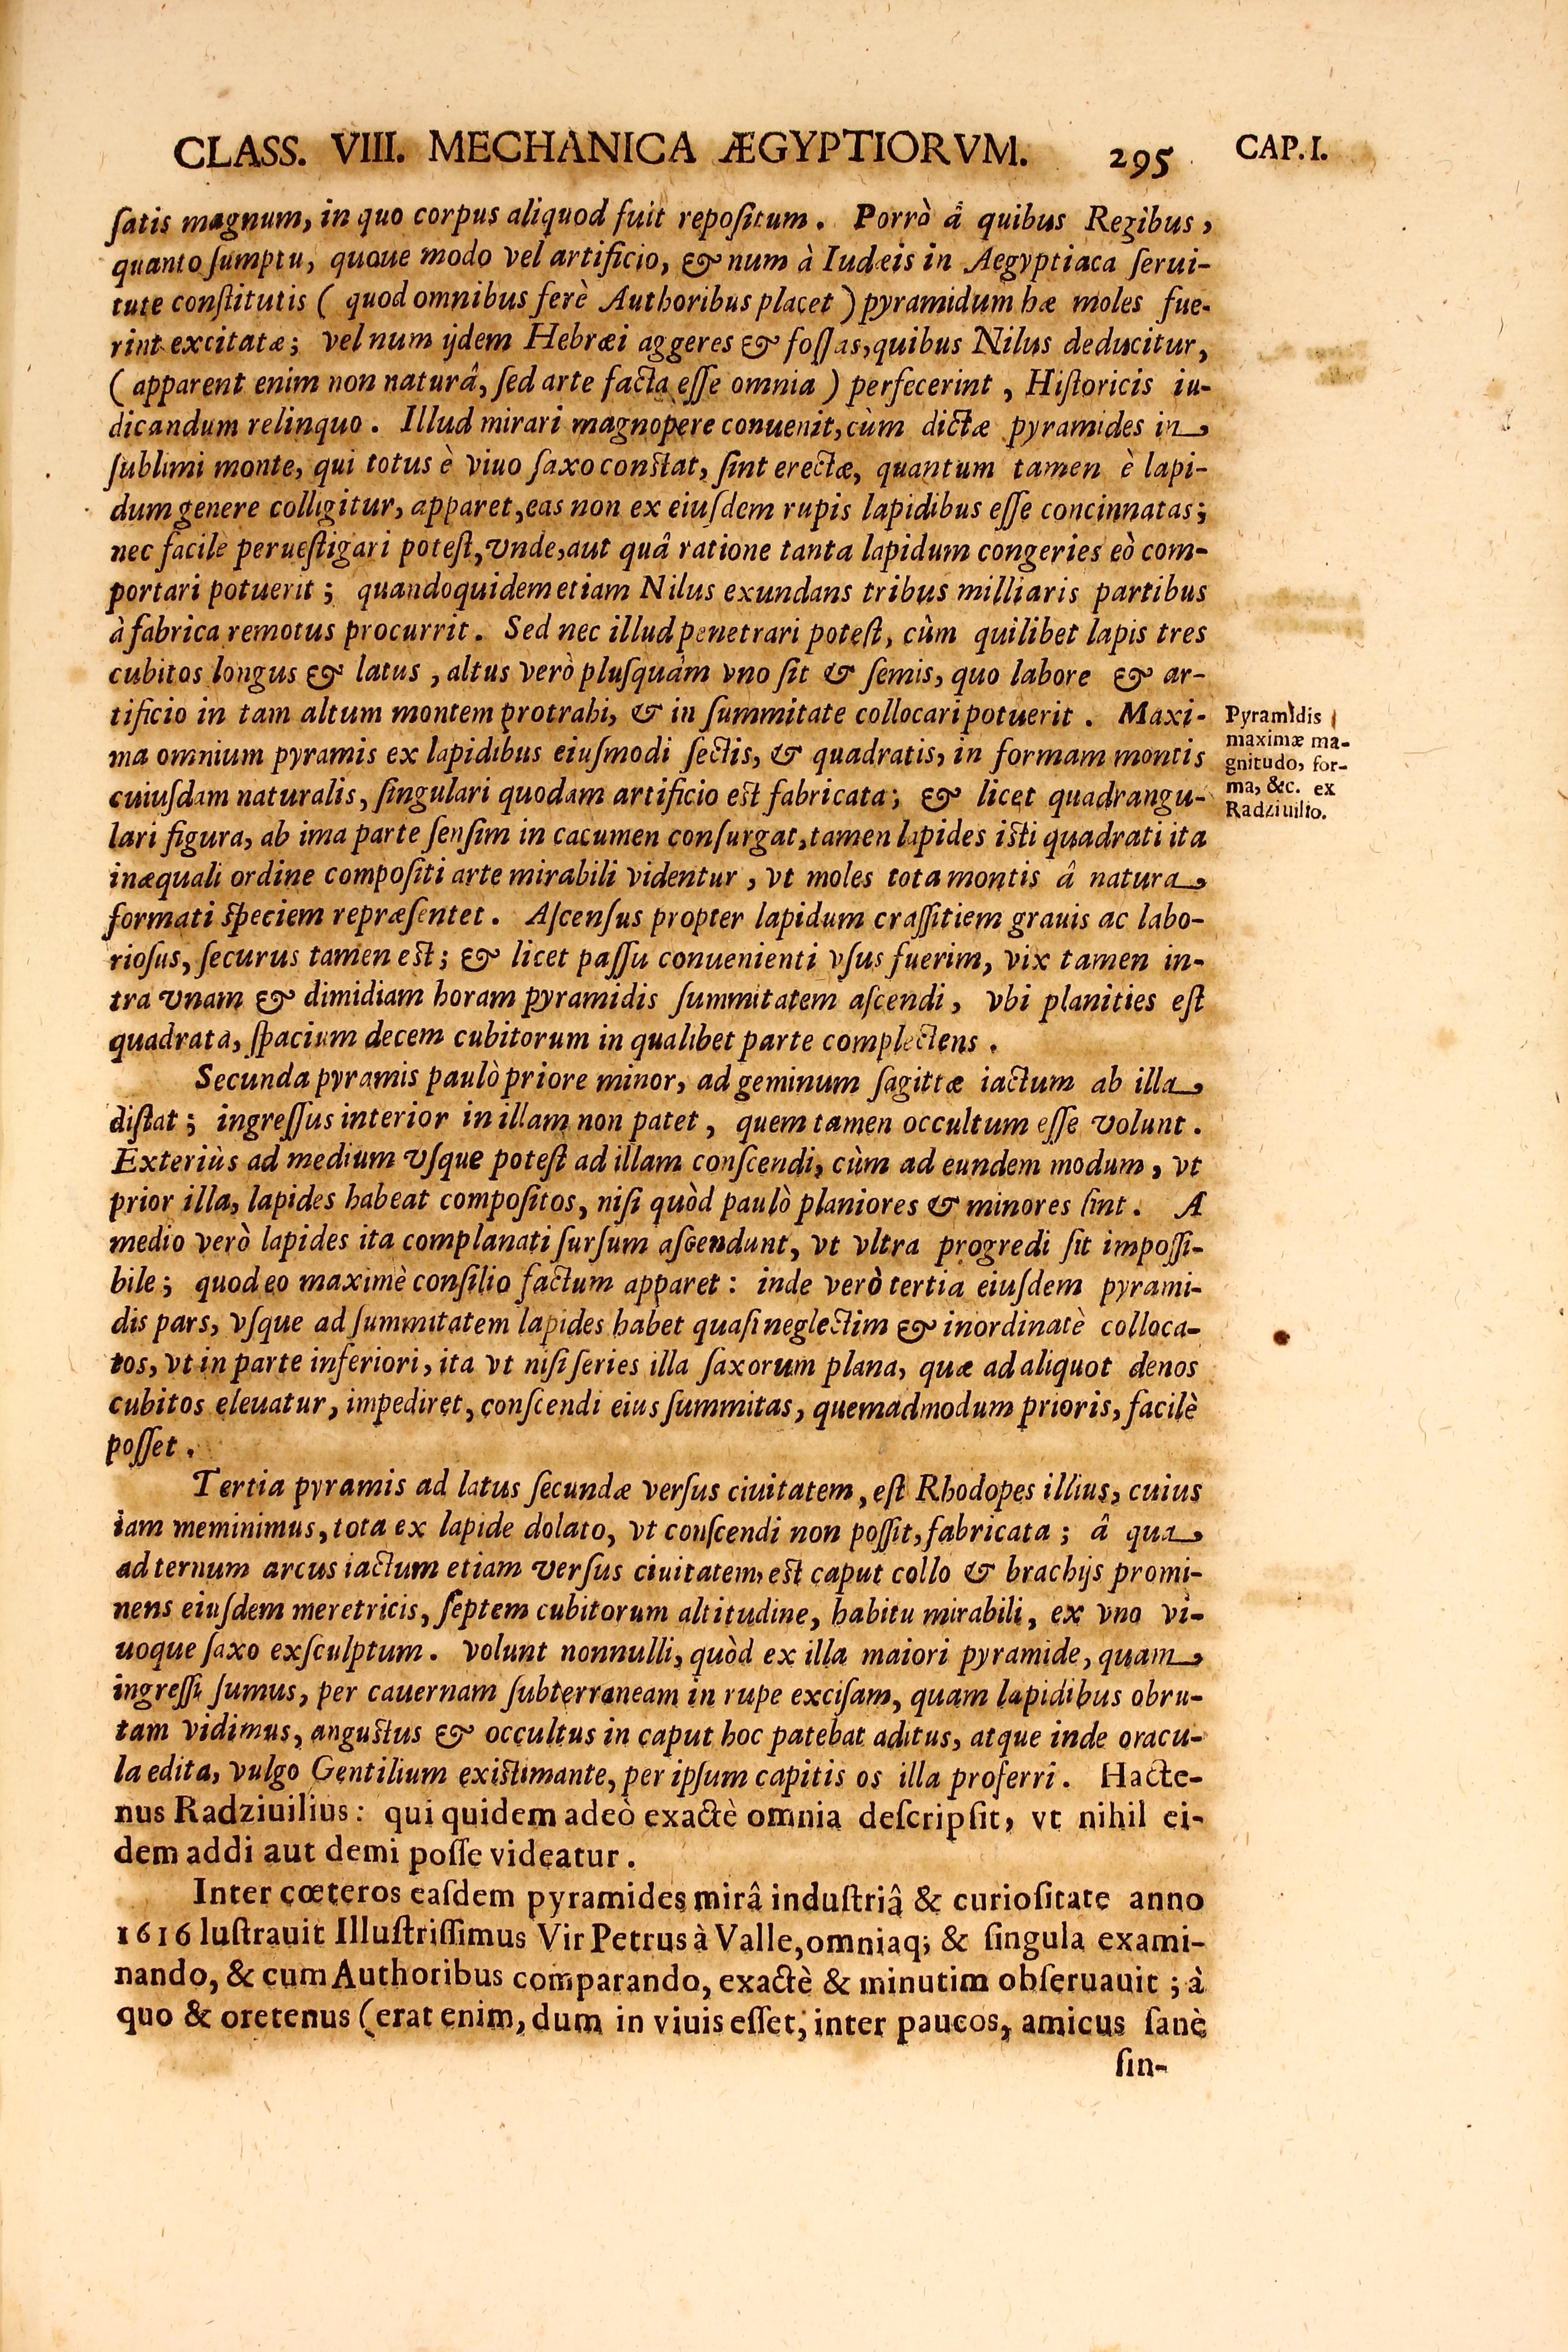 CLASS. VIII. MECHANICA ÆGYPTIORVM. 295 CAP. I.
ſatis magnum, in quo corpus aliquod fuit repoſitum. Porrò â quibus Regibus,
quanto ſumptu, quoue modo vel artificio, & num à Iudæis in Aegyptiaca ſerui-
tute conſtitutis ( quod omnibus ferè Authoribus placet ) pyramidum hæ moles fue-
rint excitatæ; vel num ijdem Hebræi aggeres & foſſas, quibus Nilus deducitur,
( apparent enim non naturâ, ſed arte facta eſſe omnia ) perfecerint, Hiſtoricis iu-
dicandum relinquo. Illud mirari magnopere conuenit, cùm dictæ pyramides in
ſublimi monte, qui totus è viuo ſaxo conſtat, ſint erectæ, quantum tamen è lapi-
dum genere colligitur, apparet, eas non ex eiuſdem rupis lapidibus eſſe concinnatas;
nec facile perueſtigari poteſt, vnde, aut quâ ratione tanta lapidum congeries eò com-
portari potuerit; quandoquidem etiam Nilus exundans tribus milliaris partibus
à fabrica remotus procurrit. Sed nec illud penetrari poteſt, cùm quilibet lapis tres
cubitos longus & latus, altus verò pluſquàm vno ſit & ſemis, quo labore & ar-
tificio in tam altum montem protrahi, & in ſummitate collocari potuerit. Maxi-
ma omnium pyramis ex lapidibus eiuſmodi ſectis, & quadratis, in formam montis
cuiuſdam naturalis, ſingulari quodam artificio eſt fabricata; & licet quadrangu-
lari figura, ab ima parte ſenſim in cacumen conſurgat, tamen lapides iſti quadrati ita
inæquali ordine compoſiti arte mirabili videntur, vt moles tota montis â natura
formati ſpeciem repræſentet. Aſcenſus propter lapidum craſſitiem grauis ac labo-
rioſus, ſecurus tamen eſt; & licet paſſu conuenienti vſus fuerim, vix tamen in-
tra vnam & dimidiam horam pyramidis ſummitatem aſcendi, vbi planities eſt
quadrata, ſpacium decem cubitorum in qualibet parte complectens.
Pyramidis
maximæ ma-
gnitudo, for-
ma, &c. ex
Radziuilio.
Secunda pyramis paulò priore minor, ad geminum ſagittæ iactum ab illa
diſtat; ingreſſus interior in illam non patet, quem tamen occultum eſſe volunt.
Exteriùs ad medium vſque poteſt ad illam conſcendi, cùm ad eundem modum, vt
prior illa, lapides habeat compoſitos, niſi quòd paulò planiores & minores ſint. A
medio verò lapides ita complanati ſurſum aſcendunt, vt vltra progredi ſit impoſſi-
bile; quod eo maximè conſilio factum apparet: inde verò tertia eiuſdem pyrami-
dis pars, vſque ad ſummitatem lapides habet quaſi neglectim & inordinatè colloca-
tos, vt in parte inferiori, ita vt niſi ſeries illa ſaxorum plana, quæ ad aliquot denos
cubitos eleuatur, impediret, conſcendi eius ſummitas, quemadmodum prioris, facilè
poſſet.
Tertia pyramis ad latus ſecundæ verſus ciuitatem, eſt Rhodopes illius, cuius
iam meminimus, tota ex lapide dolato, vt conſcendi non poſſit, fabricata; â qua
ad ternum arcus iactum etiam verſus ciuitatem, eſt caput collo & brachijs promi-
nens eiuſdem meretricis, ſeptem cubitorum altitudine, habitu mirabili, ex vno vi-
uoque ſaxo exſculptum. volunt nonnulli, quòd ex illa maiori pyramide, quam
ingreſſi ſumus, per cauernam ſubterraneam in rupe exciſam, quam lapidibus obru-
tam vidimus, anguſtus & occultus in caput hoc patebat aditus, atque inde oracu-
la edita, vulgo Gentilium exiſtimante, per ipſum capitis os illa proferri. Hacte-
nus Radziuilius: qui quidem adeò exactè omnia deſcripſit, vt nihil ei-
dem addi aut demi poſſe videatur.
Inter cœteros eaſdem pyramides mirâ induſtriâ & curioſitate anno
1616 luſtrauit Illuſtriſſimus Vir Petrus à Valle, omniaq; & ſingula exami-
nando, & cum Authoribus comparando, exactè & minutim obſeruauit; à
quo & oretenus (erat enim, dum in viuis eſſet, inter paucos, amicus ſanè
ſin-